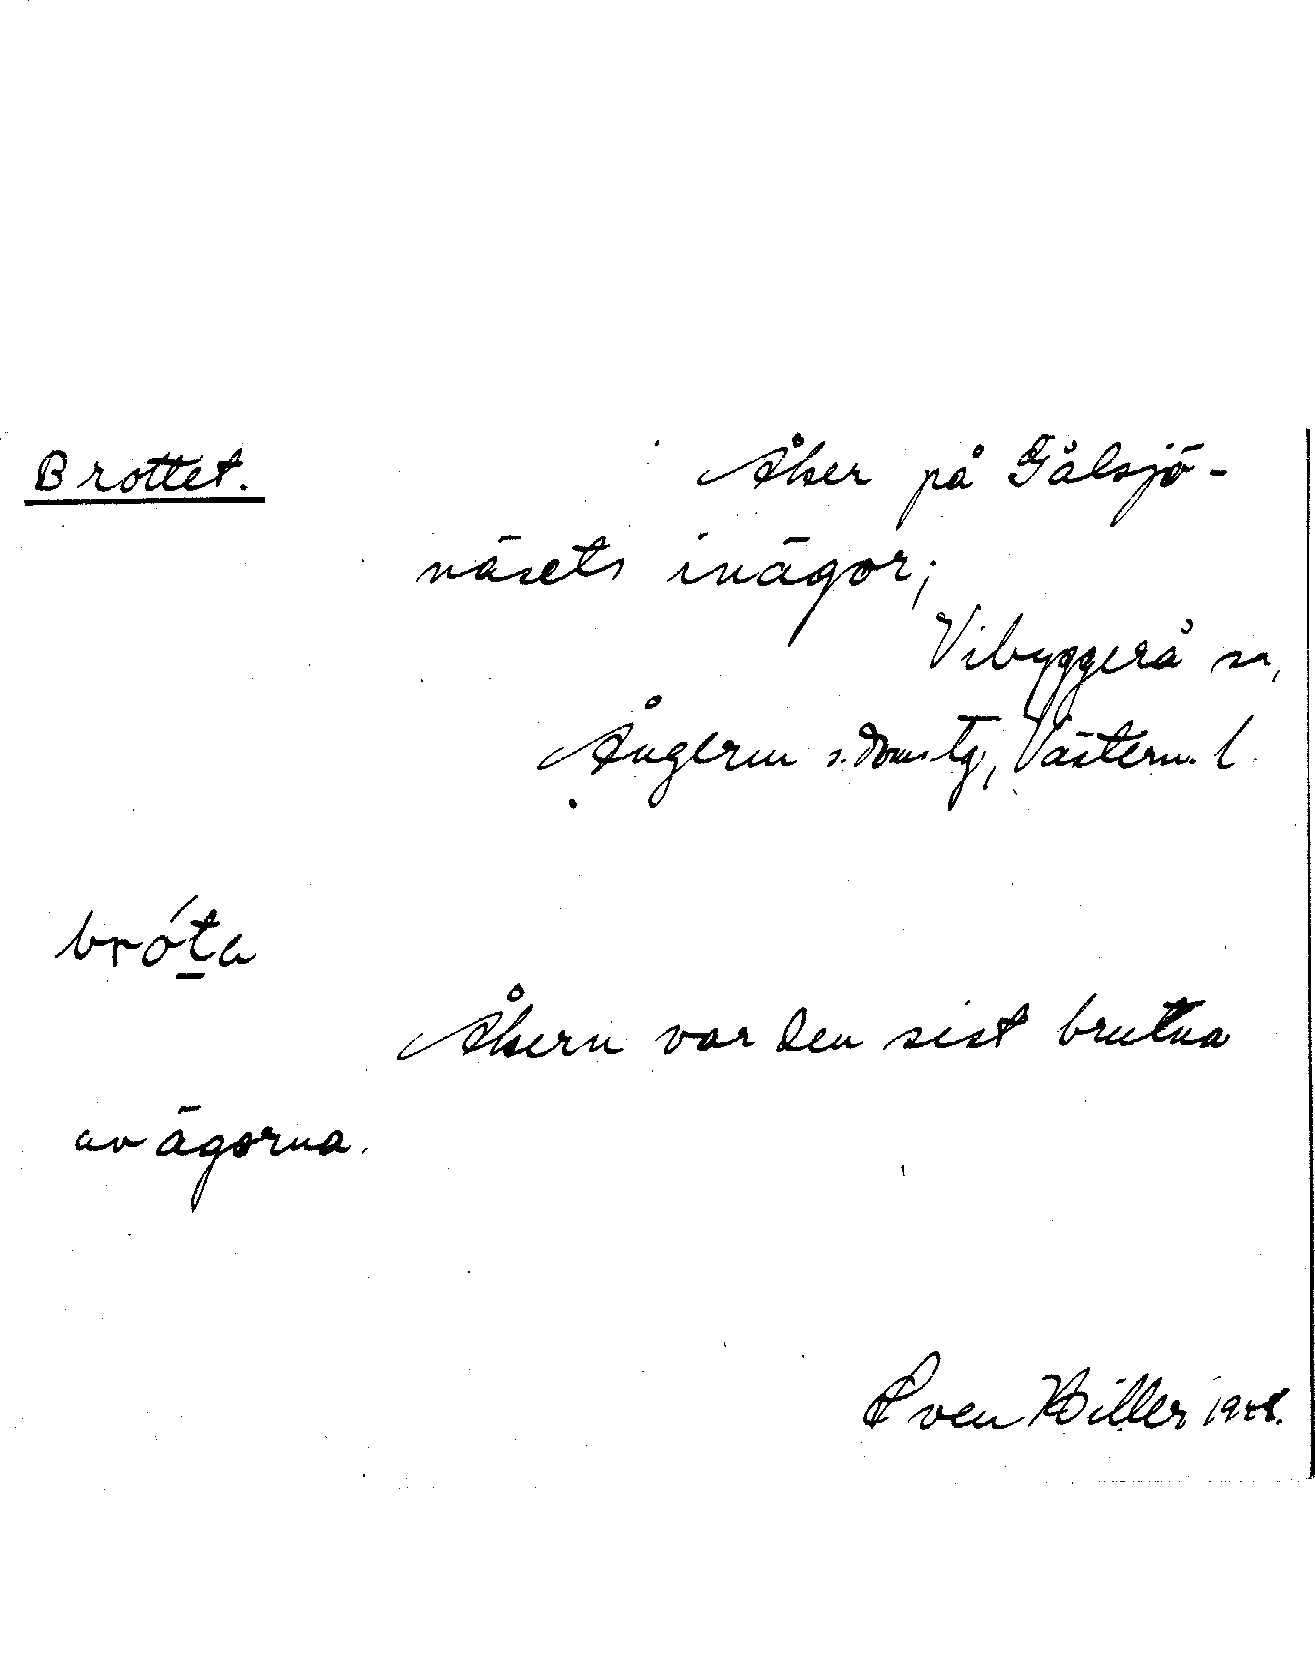 Brottet. Åker på Gålsjö-
näsets inägor;
Vibyggerå sn,
Ångerm s. domstg, Västern. l
bróta
Åkern var den sist brutna
av ägorna.
Sven Hiller